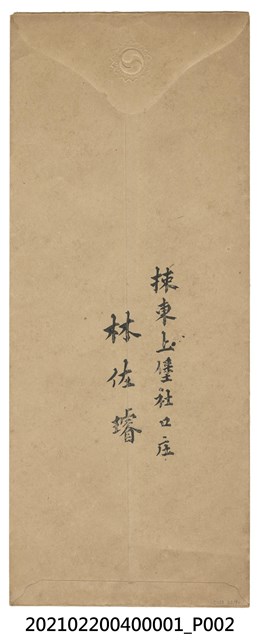 捒東上堡社口庄
林佐璿
202102200400001_P002